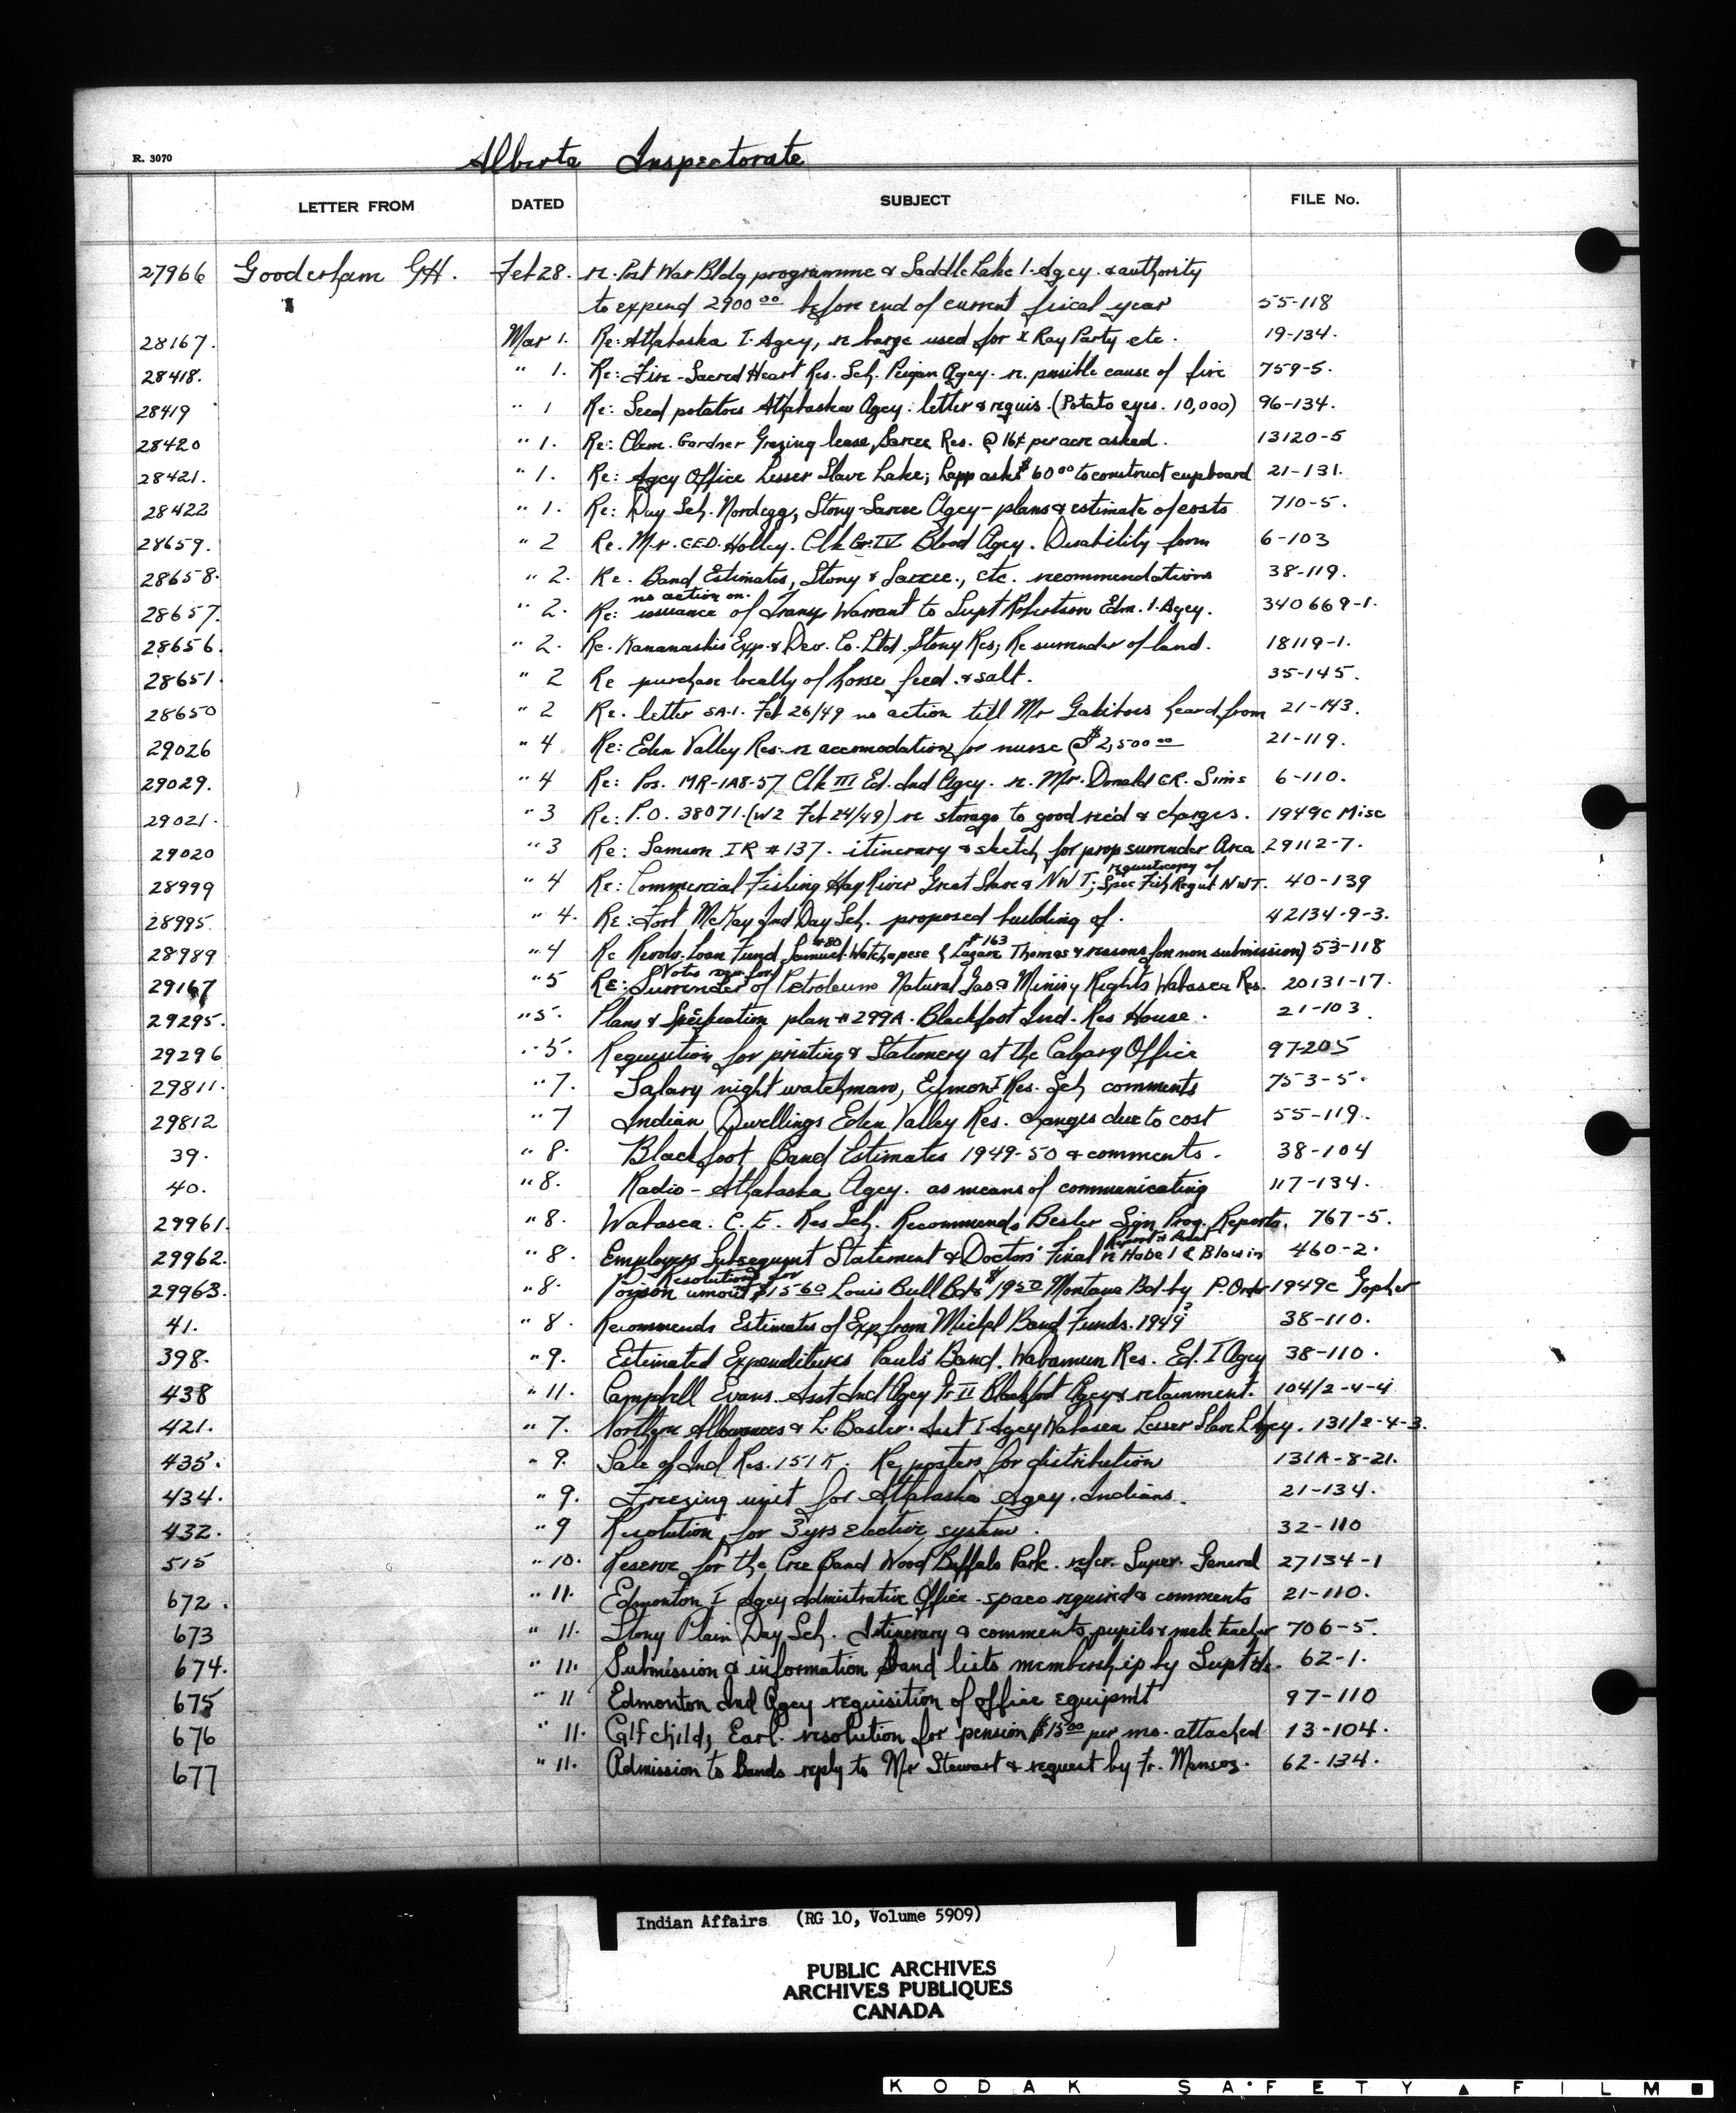 Alberta Inspectorate
R. 3070
LETTER FROM DATED SUBJECT FILE No.
27966 Gooderham GH. Feb 28. re. Post War Bldg programme & Saddle Lake I. Agcy. & authority
to expend 2900 00 before end of current fiscal year 55-118
28167. Mar 1. Re: Athabaska I. Agcy, re barge used for X Ray Party etc. 19-134.
28418. " 1. Re: Fire - Sacred Heart Res. Sch. Peigan Agcy. re. possible cause of fire 759-5.
28419 " 1 Re: Seed potatoes Athabaska Agcy. letter & requis. (Potato eyes. 10,000) 96-134.
28420 " 1. Re: Clem. Gardner Grazing lease, Sarcee Res. @ 16¢ per acre asked. 13120-5
28421. " 1. Re: Agcy Office Lesser Slave Lake; Lapp asks $60 00 to construct cupboard 21-131.
28422 " 1. Re: Day Sch. Nordegg, Stony-Sarcee Agcy - plans & estimate of costs 710-5.
28659. " 2 Re. Mr. C.E.D. Holley. Clk Gr. IV Blood Agcy. Disability form 6-103
28658. " 2. Re. Band Estimates, Stony & Sarcee., etc. recommendations 38-119.
no action on.
28657. " 2. Re: issuance of Transp Warrant to Supt Robertson Edm. I. Agcy. 340669-1.
28656. " 2. Re. Kananaskis Exp. & Dev. Co. Ltd. Stony Res; Re surrender of land. 18119-1.
28651. " 2 Re purchase locally of horse feed. & salt. 35-145.
28650 " 2 Re. letter SA-1. Feb 26/49 no action till Mr heard from 21-143.
29026 " 4. Re: Eden Valley Res. re accomodation for nurse @ $2,500 00 21-119.
29029. " 4 Re: Pos. MR-1A8-57 Clk III Ed. Ind Agcy. re. Mr. Donald CR. Sims 6-110.
29021. " 3 Re: P.O. 38071. (W2 Feb 24/49) re storage to good rec'd & charges. 1949c Misc
29020 " 3 Re: Samson IR # 137. itinerary & sketch for prop surrender Area 29112-7.
request copy of
28999 " 4 Re: Commercial Fishing Hay River Great Slave & NWT; Spec Fish Regul NWT. 40-139
28995. " 4. Re: Fort McKay Ind Day Sch. proposed building of. 42134-9-3.
#80 #163
28989 " 4 Re Revolv. Loan Fund Samuel Watchapese & Lazare Thomas & reasons for non submission) 53-118
Votes
29167 " 5 RE: Surrender of Petroleum Natural Gas & Mining Rights Wabasca Res. 20131-17.
29295. " 5. Plans & Specification plan # 299A. Blackfoot Ind. Res House. 21-103
29296 " 5. Requisition for printing & Stationery at the Calgary Office 97-205
29811. " 7. Salary night watchman, Edmont Res. Sch comments 753-5.
29812 " 7 Indian Dwellings Eden Valley Res. changes due to cost 55-119.
39. " 8. Blackfoot Band Estimates 1949-50 & comments. 38-104
40. " 8. Radio - Athabaska Agcy. as means of communicating 117-134.
29961. " 8. Wabasca. C. E. Res Sch. Recommends Besler Sign Prog. Reports. 767-5.
29962. " 8. Employers Subsequent Statement & Doctors' Final re 460-2.
Resolutions for
29963. " 8. Poison amount $15 60 Louis Bull Bd & $19 50 Montana Bd. by P. Order 1949c Gopher
41. " 8. Recommends Estimates of Exp from Michel Band Funds. 1949 38-110.
398. " 9. Estimated Expenditures Paul's Band. Wabamun Res. Ed. I Agcy 38-110.
438 " 11. Campbell Evans. Asst Ind Agcy Gr II Blackfoot Agcy & retainment. 104/2-4-4
421. " 7. Northern Allowances & L. Basler. Asst I Agcy Wabasca Lesser Slave L Agcy. 131/2-4-3.
435. " 9. Sale of Ind Res. 151K. Re posters for distribution 131A-8-21.
434. " 9. Freezing unit for Athabaska Agcy. Indians. 21-134.
432. " 9 Resolution for 3 yrs elective system. 32-110
515 " 10. Reserve for the Cree Band Wood Buffalo Park. refer. Super. General 27134-1
672. " 11. Edmonton I Agcy Admistrative Office. space required & comments 21-110.
673 " 11. Stony Plain Day Sch. Itinerary & comments pupils & male teacher 706-5.
674. " 11. Submission & information Band lists membership by Supt 62-1.
675 " 11 Edmonton Ind Agcy requisition of office equipmt 97-110
676 " 11. Calfchild, Earl. resolution for pension $15 00 per mo. attached 13-104.
677 " 11. Admission to Bands reply to Mr Stewart & request by Fr. 62-134.
Indian Affairs (RG 10, Volume 5909)
PUBLIC ARCHIVES
ARCHIVES PUBLIQUES
CANADA
KODAK SAFETY FILM